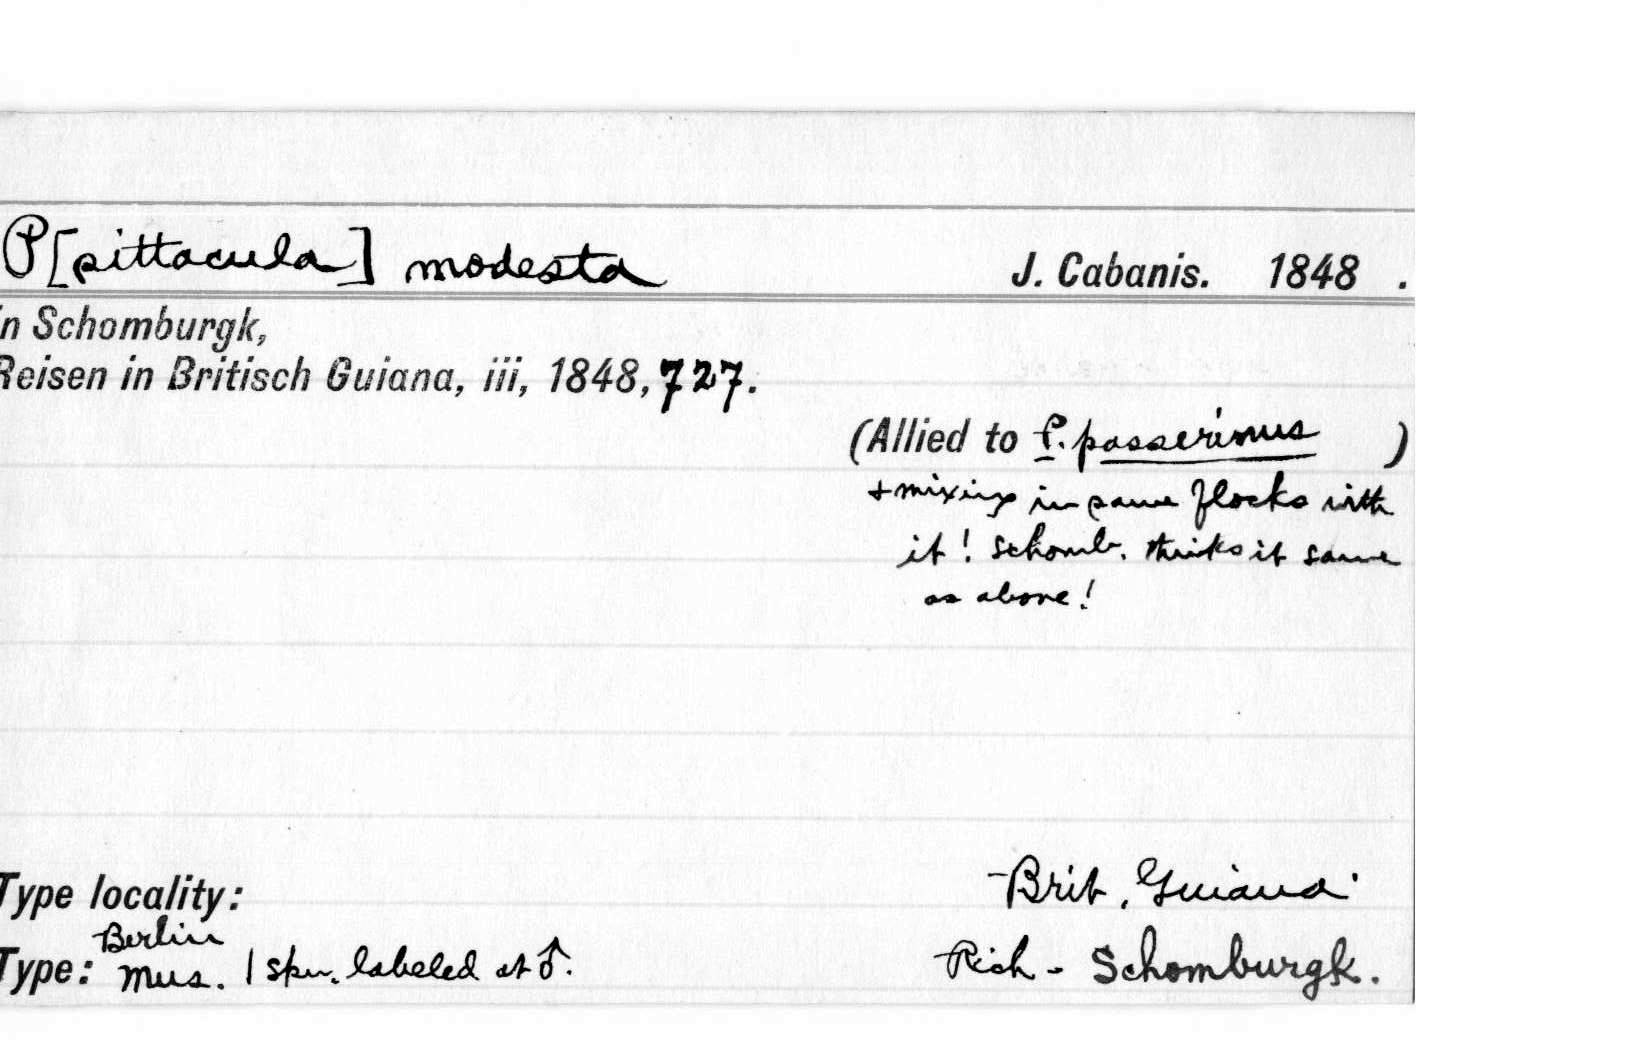 P[pittacula] modesta J. Cabanis. 1848 .
in Schomburgk,
Reisen in Britisch Guiana, iii, 1848, 727.
(Allied to P. passerinus )
+ mixing in same flocks with
it! Schomb. thinks it same
as above!
Type locality: Brit. Guiana
Type: Berlin Mus. 1 spm. labeled at ♂. Rich - Schomburgk.